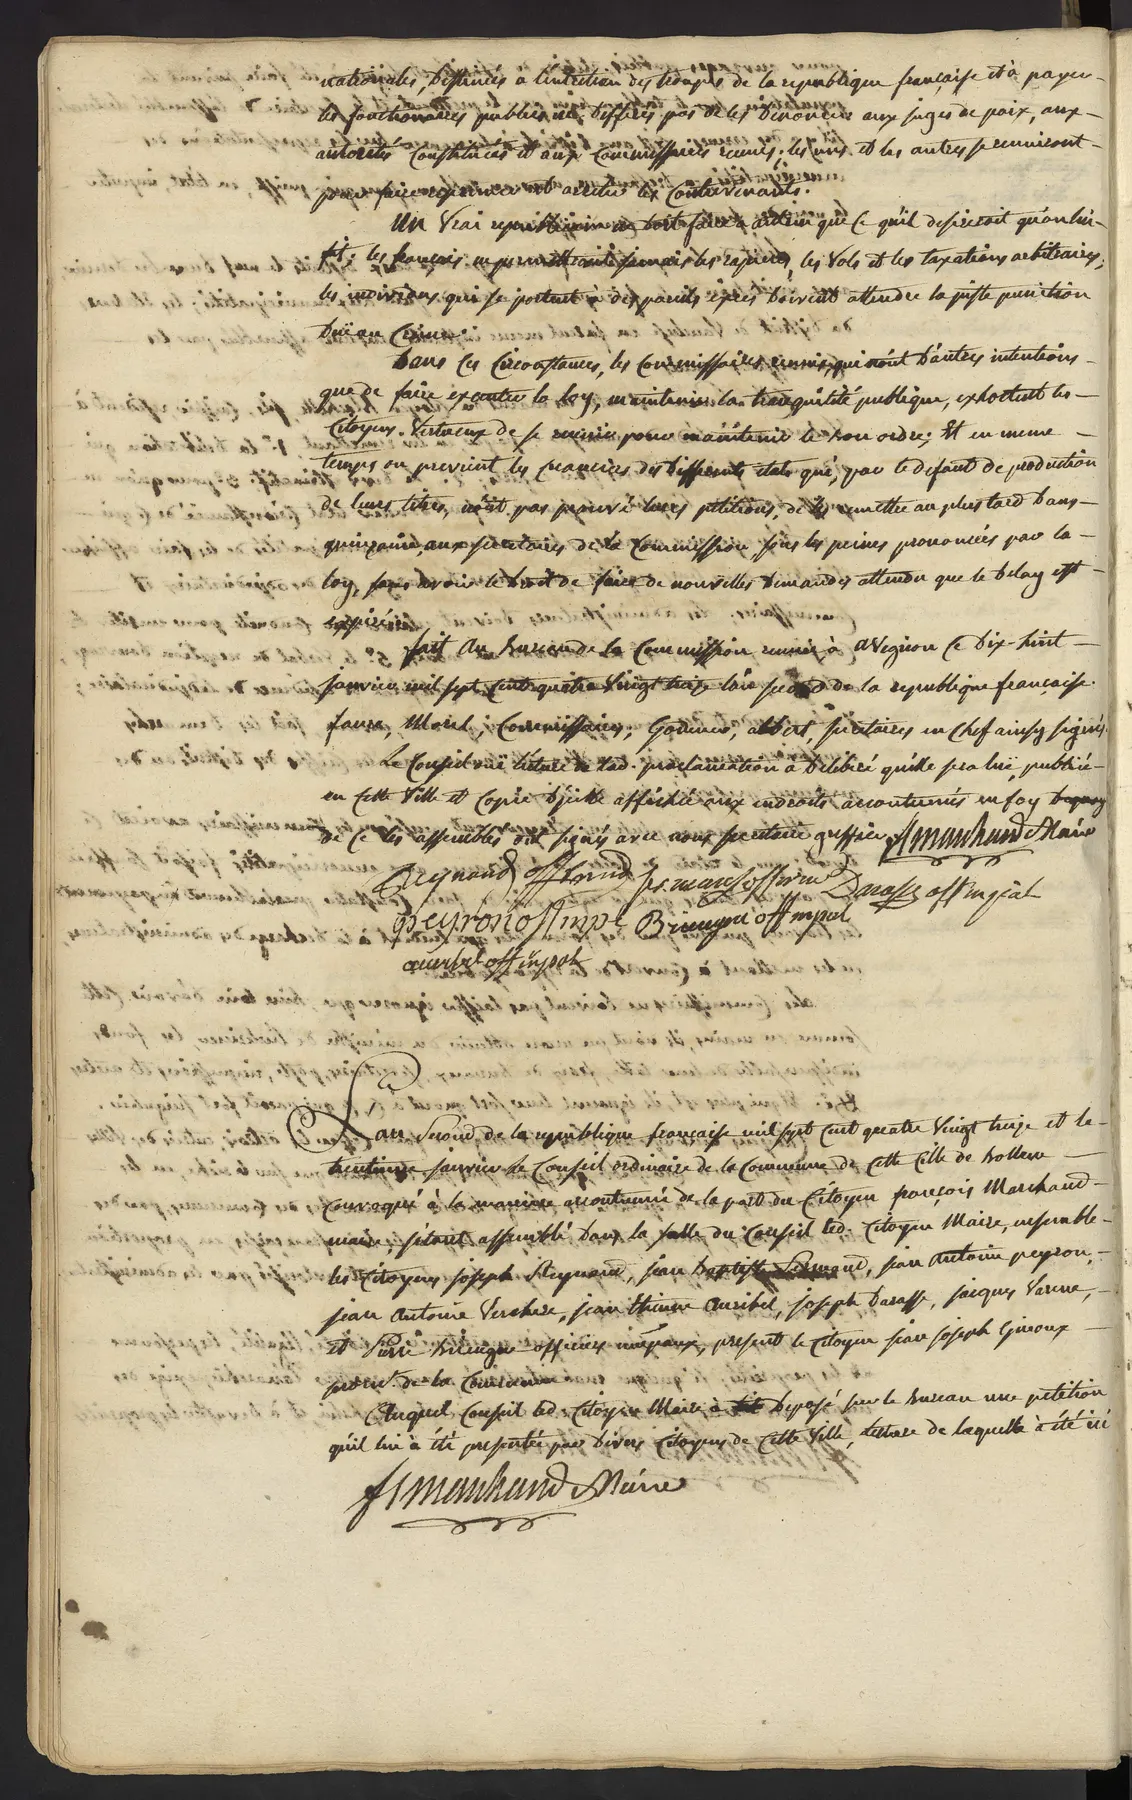 nationales, destinées à l'entretien des troupes de la republique française et à payer
les fonctionaires publics ne differés pas de les denoncer aux juges de paix, aux
autorités constituées et aux commissaires reunis; les uns et les autres se reuniront
pour faire et arretter les contrevenants.
un vrai republicain ne doit faire à autrui que ce qu'il desireroit qu'on lui
fit; les français ne permettront jamais les rapines, les vols et les taxations arbitraires;
les individus qui se portent à des pareils excès doivent attendre la juste punition
duë au crime.
dans ces circonstances, les commissaires reunis, qui n'ont d'autres intentions
que de faire executer la loy, maintenir la tranquilité publique, exhortent les
citoyens vertueux de se reunir pour maintenir le bon ordre; Et en meme
temps on previent les creanciers des differents etats qui, par le defaut de production
de leurs titres, n'ont pas prouvé leurs petitions, de les remettre au plus tard dans
quinzaine aux secretaires de la commission, sous les peines prononcées par la
loy, sans avoir le droit de faire de nouvelles demandes attendu que le delay est
expiré.
fait au bureau de la commission reunie à avignon ce dix-huit
janvier mil sept cents quatre vingt treize l'an second de la republique française.
faure, Morel, commissaires, albert, secretaires en chef ainsy signés.
Le Conseil ouï lecture de lad. proclamation à deliberé qu'elle sera luë, publiée
en cette ville et copie d'icelle affichée aux endroits accoutumés en foy
de ce les assemblés ont signés avec nous secretaire greffier f marchand Maire
Reynaud off mpal
peyron off mpl Biscugne off mpal
auribel off mpal
L'an second de la republique française mil sept cent quatre vingt treize et le
trentieme janvier le Conseil ordinaire de la Commune de cette ville de bollene
convoqué à la maniere accoutumée de la part du Citoyen françois Marchand
maire, s'étant assemblé dans la salle du Conseil led. Citoyen Maire, ensemble
les Citoyens joseph Reynaud, jean Baptiste jean Antoine peyron,
jean Antoine Verchere, jean Etienne auribel, joseph Darasse, jacques
et Pierre officiers mupaux, present le citoyen jean joseph Giroux
procur. de la Commune
Auquel Conseil led. Citoyen Maire à deposé sur le bureau une petition
qu'il lui à été presentée par divers Citoyens de cette ville, lecture de laquelle à été ici
f marchand Maire